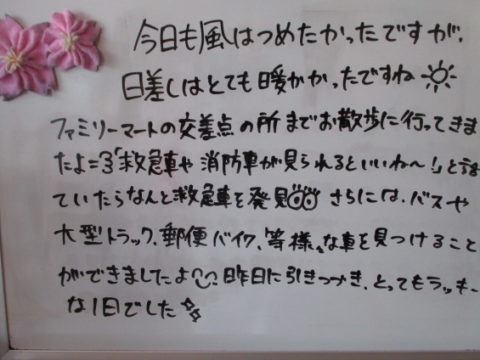 今日も風はつめたかったですが、
日差しはとても暖かかったですね
ファミリーマートの交差点の所までお散歩に行ってきま
したよ=3「救急車や消防車が見られるといいね～!」と話し
ていたらなんと救急車を発見 さらには、バスや
大型トラック、郵便バイク、等様々な車を見つけること
ができましたよ 昨日に引きつづき、とってもラッキー
な1日でした